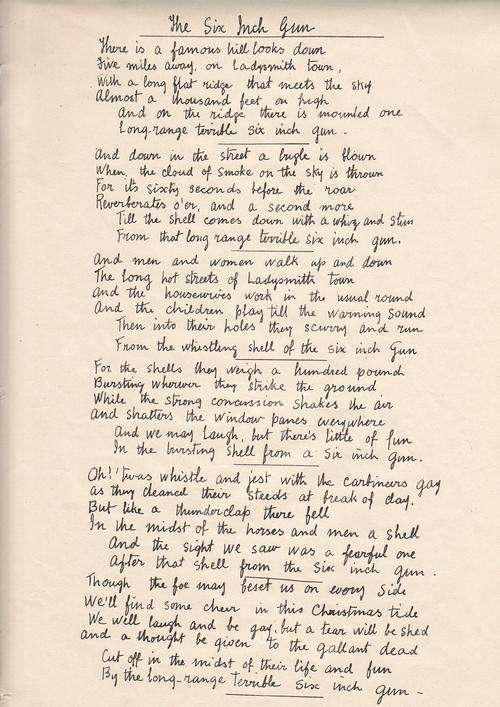 The Six Inch Gun
There is a famous hill looks down
Five miles away, on Ladysmith town,
With a long flat ridge that meets the sky
Almost a thousand feet on high
And on the ridge there is mounted one
Long-range terrible six inch gun.
And down in the street a bugle is blown
When, the cloud of smoke on the sky is thrown
For it's sixty seconds before the roar
Reverberates o'er, and a second more
Till the shell comes down with a whizz and stun
From that long range terrible six inch gun.
And men and women walk up and down
The long hot streets of Ladysmith town
And the housewives work in the usual round
And the children play till the warning sound
Then into their holes they scurry and run
From the whistling shell of the six inch Gun
For the shells they weigh a hundred pound
Bursting wherever they strike the ground
While the strong concussion shakes the air
And shatters the window panes everywhere
And we may laugh, but there's little of fun
In the bursting shell from a six inch gun.
Oh! 'twas whistle and jest with the carbineers gay
As they cleaned their steeds at break of day.
But like a thunderclap there fell
In the midst of the horses and men a shell
And the sight we saw was a fearful one
After that shell from the six inch gun.
Though the foe may beset us on every side
We'll find some cheer in this Christmas tide
We will laugh and be gay, but a tear will be shed
and a thought be given to the gallant dead
Cut off in the midst of their life and fun
By the long-range terrible six inch gun -